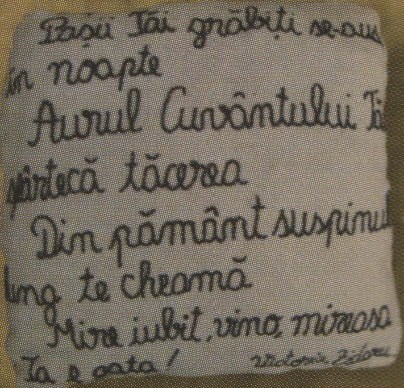 Pașii Tăi grăbiți se-aud
în noapte
Aurul Cuvântului Tă
spârtecă tăcerea
Din pământ suspinul
lung te cheamă
Mire iubit, vino, mireasa
Ta e gata! Victoria Zidaru